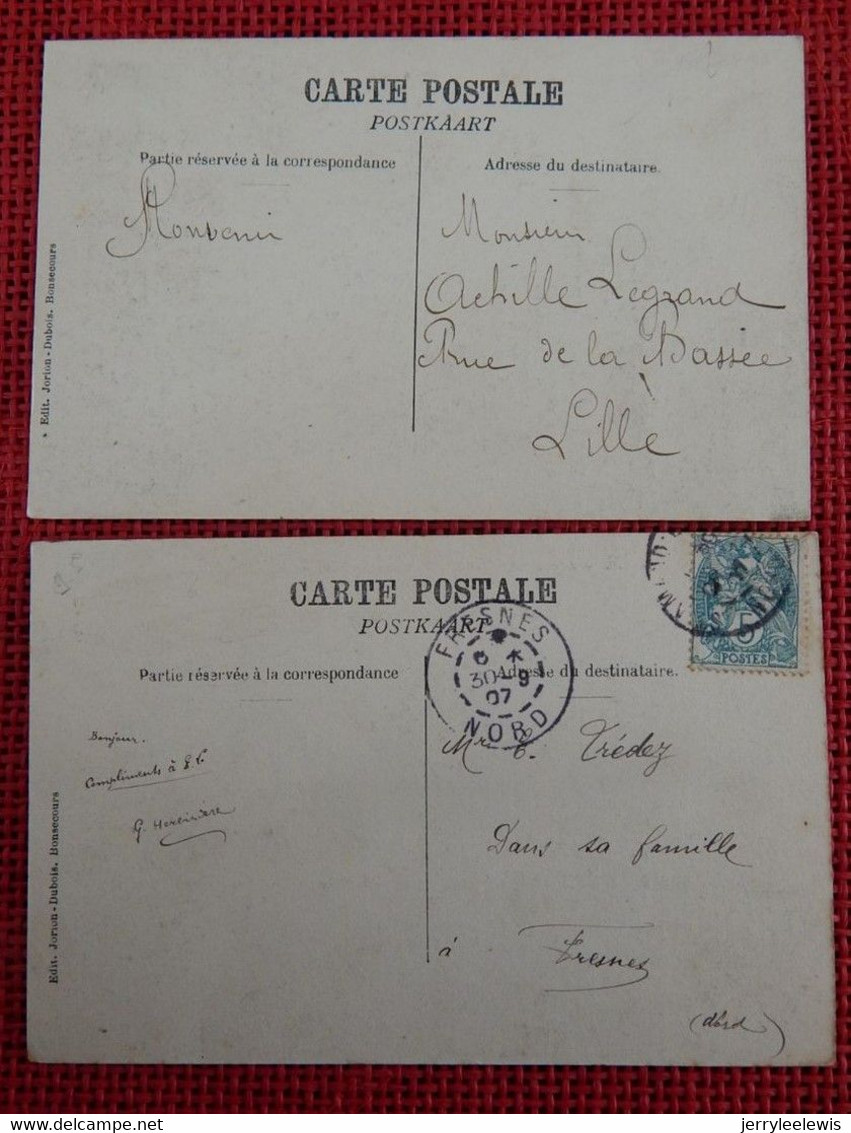 CARTE POSTALE
POSTKAART
Partie réservée à la correspondance
Adresse du destinataire.
Souvenir
Monsieur
Achille Legrand
Rue de la Bassée
à
Lille
* Edit. Jorion-Dubois. Bonsecours
CARTE POSTALE
POSTKAART
Partie réservée à la correspondance
Adresse du destinataire.
FRESNES
30-9
07
NORD
5
POSTES
Bonjour.
Compliments à
G.
Mr Trédez
Dans sa famille
à Fresnes
(Nord)
Edit. Jorion-Dubois. Bonsecours
delcampe.net
jerryleelewis